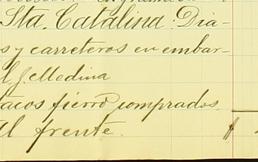 Sta. Catalina: Dia-
s y carreteros en embar-
l J. Medina
tacos fierro comprados.
Al frente. $